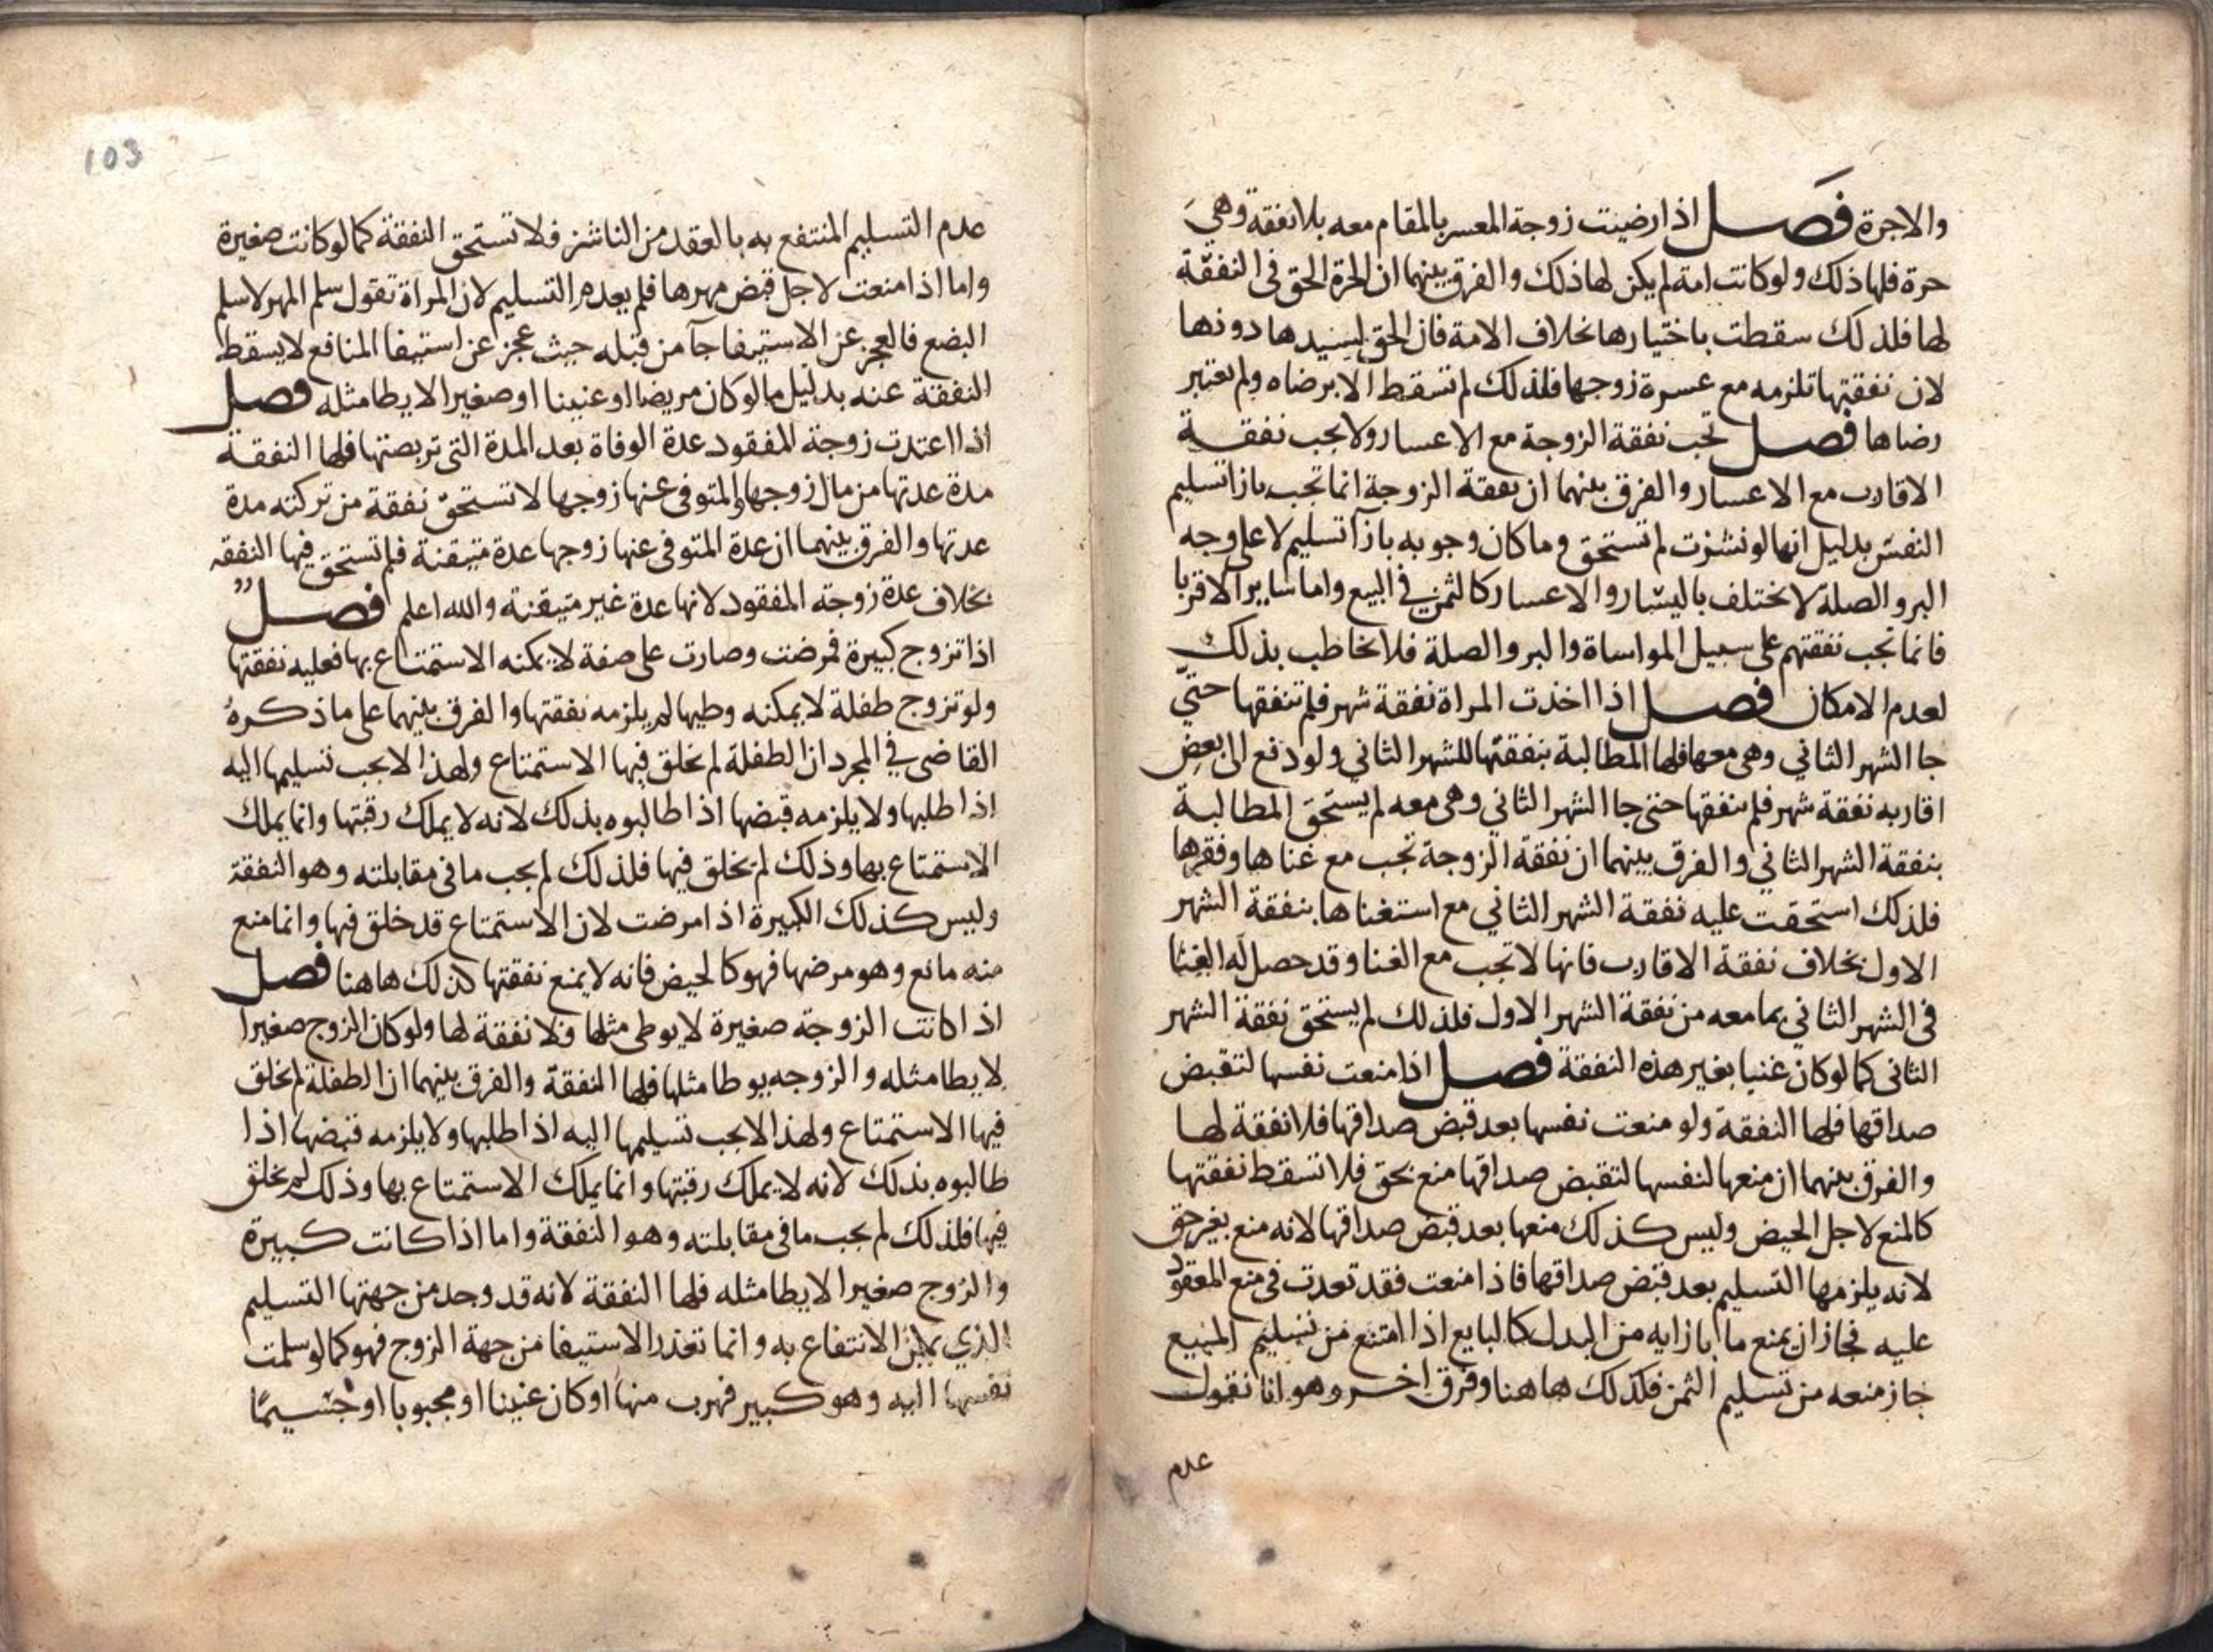 والاجرة فصل اذا رضيت زوجة المعسر بالمقام معه بلا نفقة وهي
حرة فلها ذلك ولو كانت امة لم يكن لها ذلك والفرق بينهما ان الحرة الحق في النفقة
لها فلذلك سقطت باختيارها بخلاف الامة فان الحق لسيدها دونها
لان نفقتها تلزمه مع عسرة زوجها فلذلك لم تسقط الا برضاه ولم يعتبر
رضاها فصل تجب نفقة الزوجة مع الاعسار ولا يجب نفقة
الاقارب مع الاعسار والفرق بينهما ان نفقة الزوجة انما تجب بازا تسليم
النفس بدليل انها لو نشزت لم تستحق وما كان وجوبه بازآ تسليم لا على وجه
البر والصلة لا يختلف باليسار والاعسار كالثمن في البيع واما ساير الاقربا
فانما تجب نفقتهم على سبيل المواساة والبر والصلة فلا يخاطب بذلك
لعدم الامكان فصل اذا اخذت المراة نفقة شهر فلم تنفقها حتي
جا الشهر الثاني وهي معها فلها المطالبة بنفقتها للشهر الثاني ولو دفع الى بعض
اقاربه نفقة شهر فلم ينفقها حتى جا الشهر الثاني وهي معه لم يستحق المطالبة
بنفقة الشهر الثاني والفرق بينهما ان نفقة الزوجة تجب مع غناها وفقرها
فلذلك استحقت عليه نفقة الشهر الثاني مع استغناها بنفقة الشهر
الاول بخلاف نفقة الاقارب فانها لا تجب مع الغنا وقد حصل له الغنا
في الشهر الثاني بما معه من نفقة الشهر الاول فلذلك لم يستحق نفقة الشهر
الثاني كما لو كان غنيا بغير هذه النفقة فصل اذا منعت نفسها لتقبض
صداقها فلها النفقة ولو منعت نفسها بعد قبض صداقها فلا نفقة لها
والفرق بينهما ان منعها لنفسها لتقبض صداقها منع بحق فلا تسقط نفقتها
كالمنع لاجل الحيض وليس كذلك منعها بعد قبض صداقها لانه منع بغير حق
لانه يلزمها التسليم بعد قبض صداقها فاذا منعت فقد تعدت في منع المعقود
عليه فجاز ان يمنع ما بازايه من البدل كالبايع اذا امتنع من تسليم المبيع
جاز منعه من تسليم الثمن فكذلك هاهنا وفرق اخر وهو انا نقول
عدم
103
عدم التسليم المنتفع به بالعقد من الناشز فلا تستحق النفقة كما لو كانت صغيرة
واما اذا منعت لاجل قبض مهرها فلم يعدم التسليم لان المراة تقول سلم المهر لاسلم
البضع فالعجز عن الاستيفا جآ من قبله حيث عجز عن استيفا المنافع لا يسقط
النفقة عنه بدليل ما لو كان مريضا او عنينا او صغيرا لا يطا مثله فصل
اذا اعتدت زوجة المفقود عدة الوفاة بعد المدة التي تربصتها فلها النفقة
مدة عدتها من مال زوجها والمتوفى عنها زوجها لا تستحق نفقة من تركته مدة
عدتها والفرق بينهما ان عدة المتوفى عنها زوجها عدة متيقنة فلم تستحق فيها النفقه
بخلاف عدة زوجة المفقود لانها عدة غير متيقنة والله اعلم فصل
اذا تزوج كبيرة فمرضت وصارت على صفة لا يمكنه الاستمتاع بها فعليه نفقتها
ولو تزوج طفلة لا يمكنه وطيها لم يلزمه نفقتها والفرق بينهما على ما ذكره
القاضي في المجرد ان الطفلة لم يخلق فيها الاستمتاع ولهذا لا يجب تسليمها اليه
اذا طلبها ولا يلزمه قبضها اذا طالبوه بذلك لانه لا يملك رقبتها وانما يملك
الاستمتاع بها وذلك لم يخلق فيها فلذلك لم يجب ما في مقابلته وهو النفقة
وليس كذلك الكبيرة اذا مرضت لان الاستمتاع قد خلق فيها وانما منع
منه مانع وهو مرضها فهو كالحيض فانه لا يمنع نفقتها كذلك هاهنا فصل
اذا كانت الزوجة صغيرة لا يوطى مثلها فلا نفقة لها ولو كان الزوج صغيرا
لا يطا مثله والزوجه يوطا مثلها فلها النفقة والفرق بينهما ان الطفلة لم يخلق
فيها الاستمتاع ولهذا لا يجب تسليمها اليه اذا طلبها ولا يلزمه قبضها اذا
طالبوه بذلك لانه لا يملك رقبتها وانما يملك الاستمتاع بها وذلك لم يخلق
فيها فلذلك لم يجب ما في مقابلته وهو النفقة واما اذا كانت كبيرة
والزوج صغيرا لا يطا مثله فلها النفقة لانه قد وجد من جهتها التسليم
الذي يمكن الانتفاع به وانما تعذر الاستيفا من جهة الزوج فهو كما لو سلمت
نفسها اليه وهو كبير فهرب منها او كان عنينا او مجبوبا او